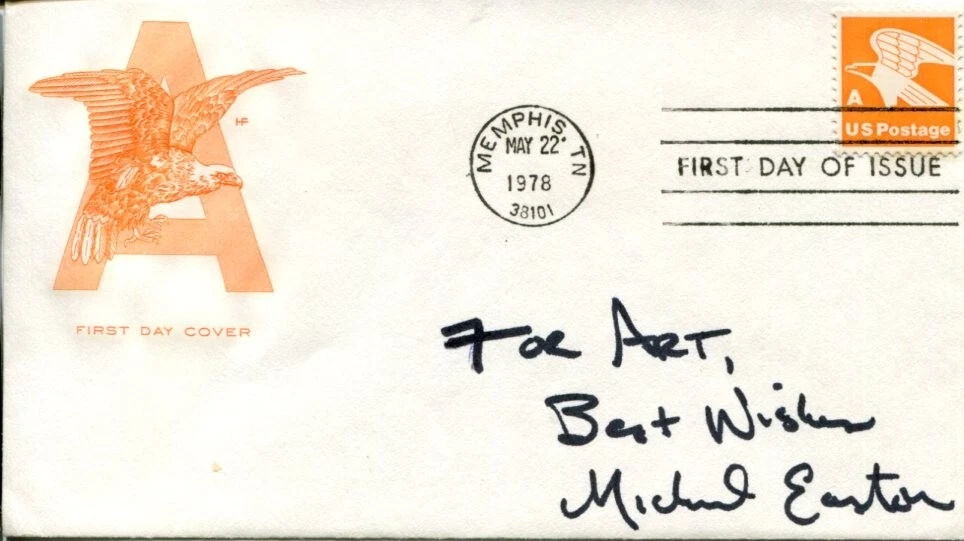 A
US Postage
MEMPHIS, TN
MAY 22
1978
38101
FIRST DAY OF ISSUE
A
HF
FIRST DAY COVER
FOR ART,
Best Wishes
Michael Easton